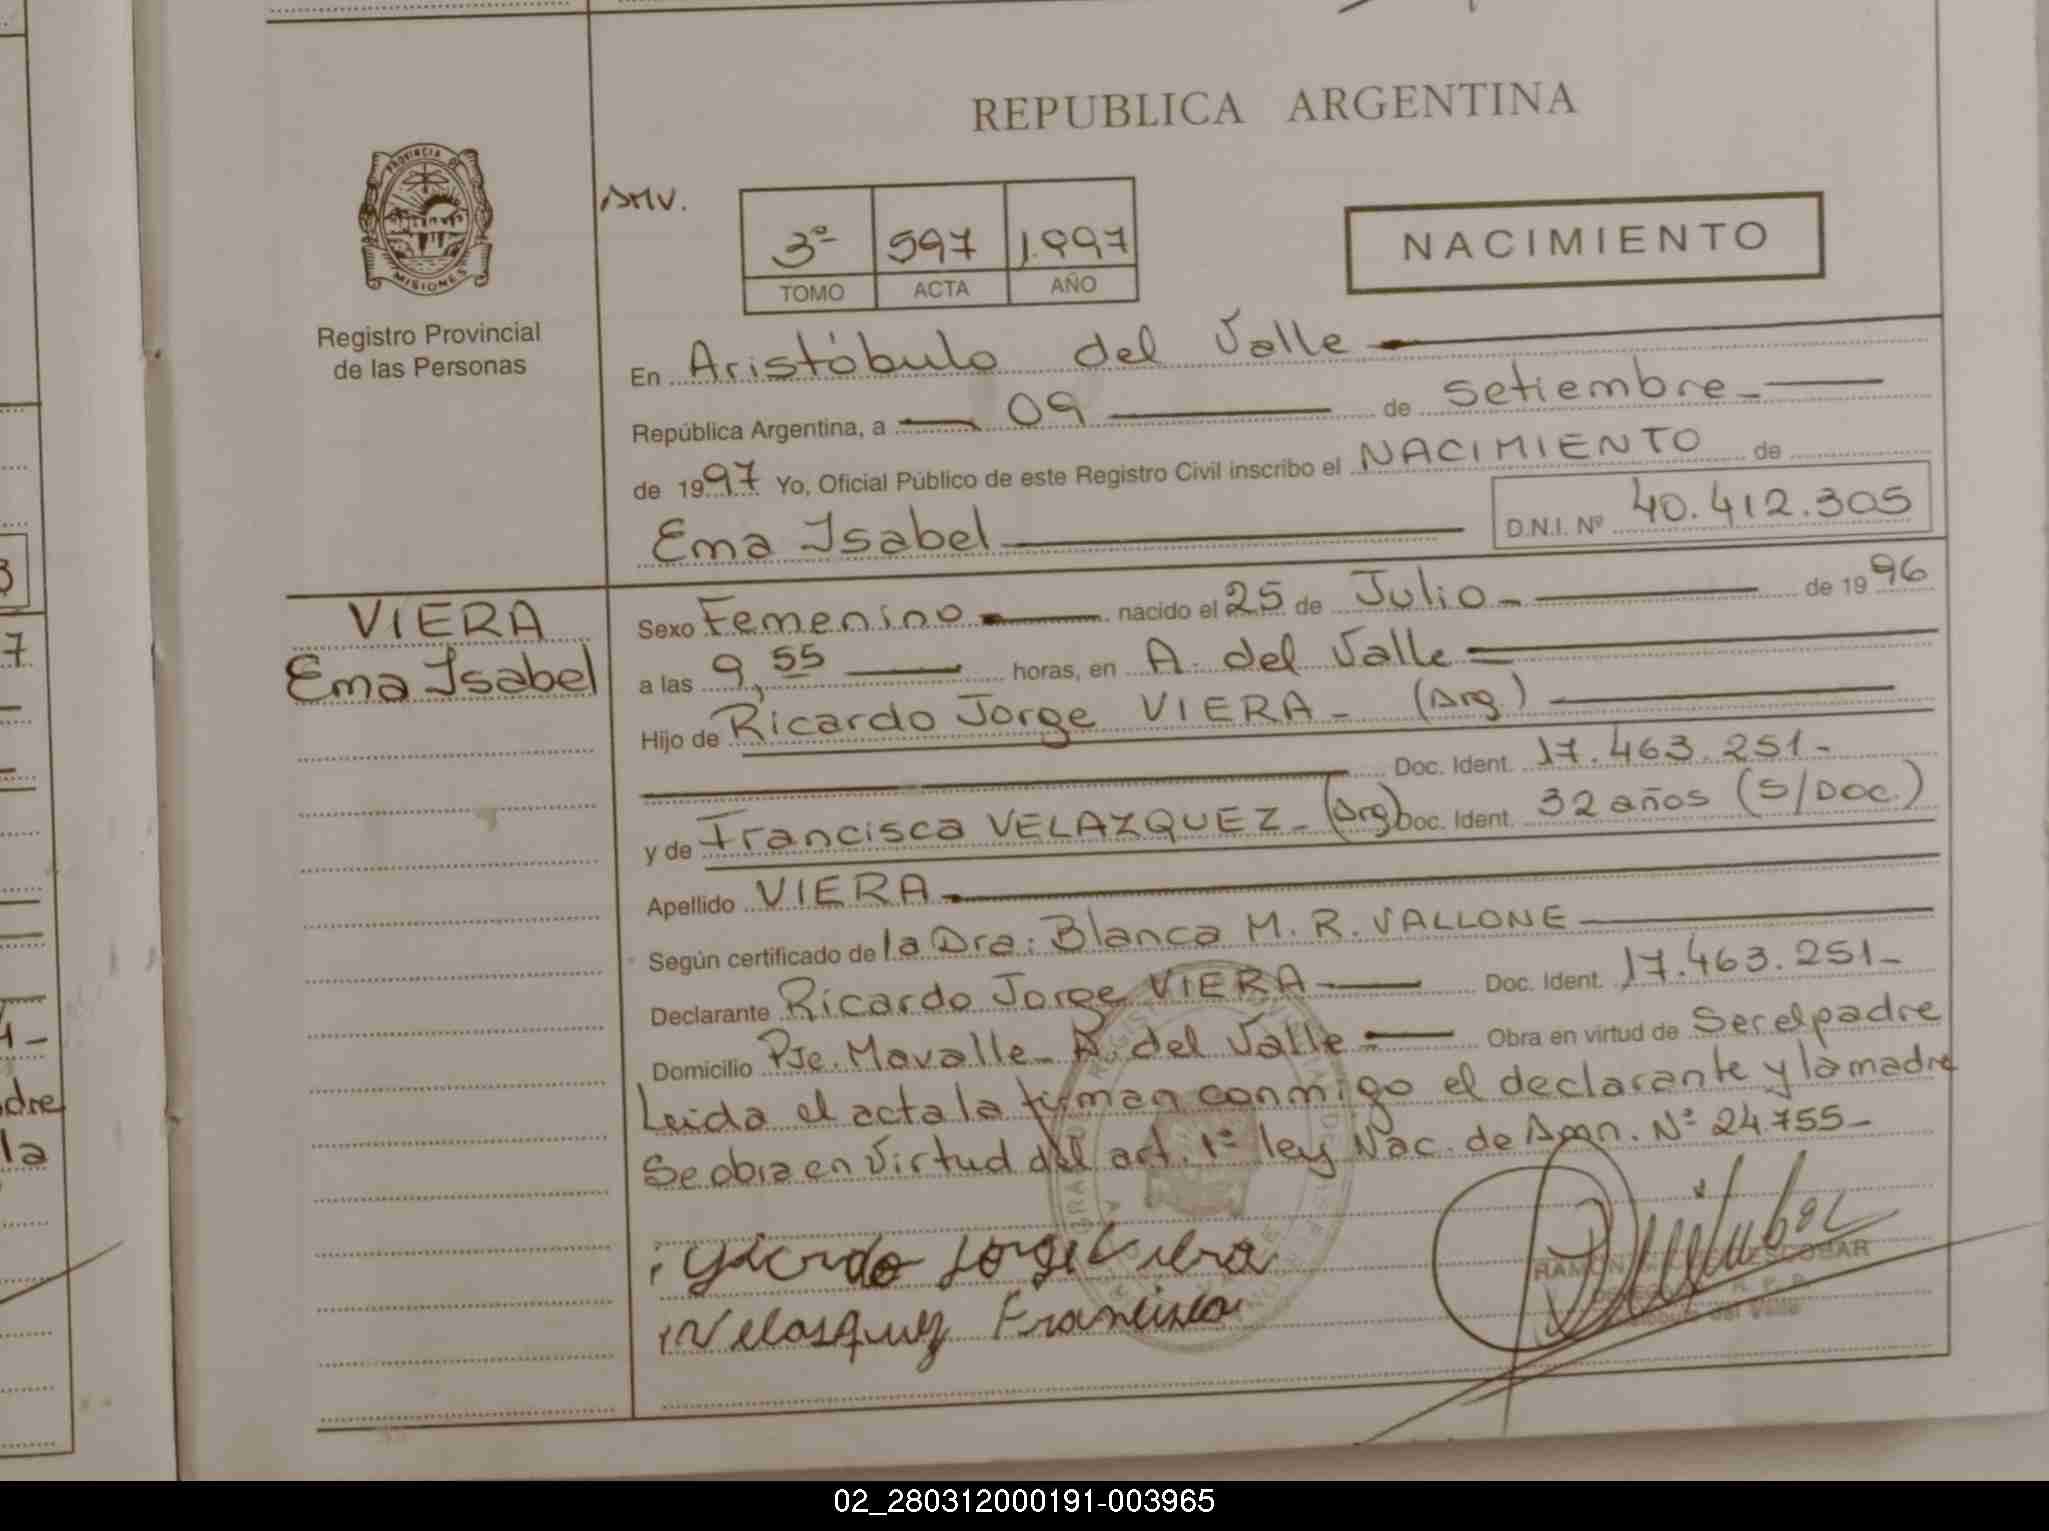 REPUBLICA ARGENTINA
PROVINCIA DE
MISIONES
Registro Provincial
de las Personas
AMV.
3º 597 1.997
TOMO ACTA AÑO
NACIMIENTO
En Aristóbulo del Valle
República Argentina, a 09 de setiembre
de 1997 Yo, Oficial Público de este Registro Civil inscribo el NACIMIENTO de
Ema Isabel D.N.I. Nº 40.412.305
VIERA
Ema Isabel
Sexo Femenino nacido el 25 de Julio de 1996
a las 9,55 horas, en A. del Valle
Hijo de Ricardo Jorge VIERA - (Arg)
Doc. Ident. 17.463.251-
y de Francisca VELAZQUEZ - (Arg) Doc. Ident. 32 años (S/Doc.)
Apellido VIERA
Según certificado de la Dra: Blanca M. R. VALLONE
Declarante Ricardo Jorge VIERA Doc. Ident. 17.463.251-
Domicilio Pje. Mavalle - A. del Valle Obra en virtud de Ser el padre
Leida el acta la firman conmigo el declarante y la madre
Se obra en virtud del art. 1º ley Nac. de Amn. Nº 24.755-
Velasquez Francisca
RAMON ESCOBAR
del Valle
02_280312000191-003965